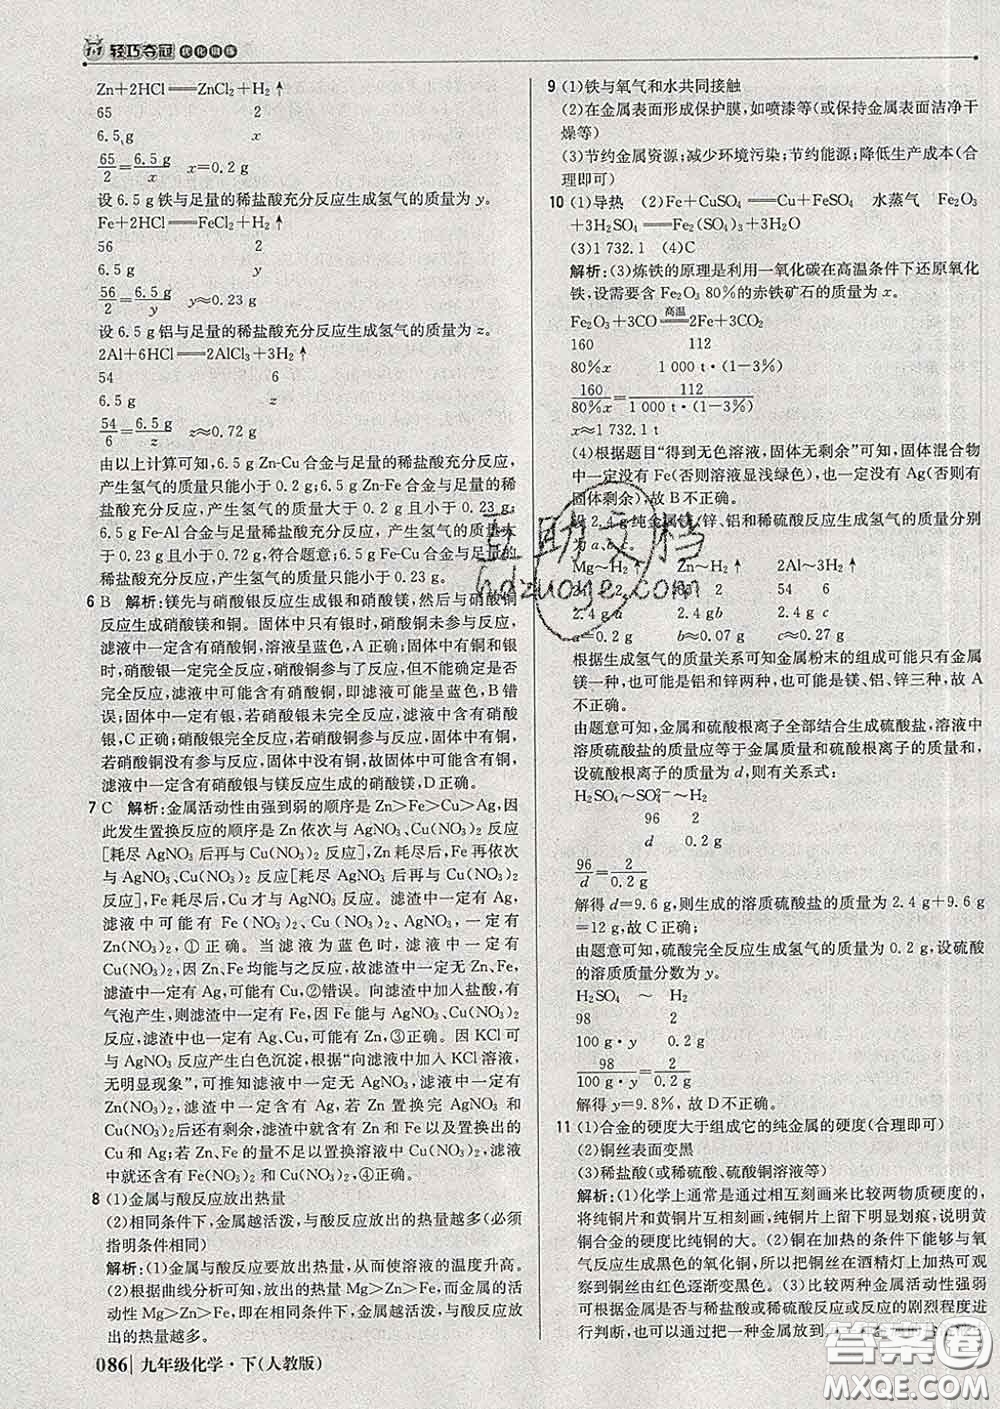 1+1 轻巧夺冠 优化训练
Zn+2HCl══ZnCl₂+H₂↑
65 2
6.5 g x
65/2=6.5 g/x x=0.2 g
设 6.5 g 铁与足量的稀盐酸充分反应生成氢气的质量为 y。
Fe+2HCl══FeCl₂+H₂↑
56 2
6.5 g y
56/2=6.5 g/y y≈0.23 g
设 6.5 g 铝与足量的稀盐酸充分反应生成氢气的质量为 z。
2Al+6HCl══2AlCl₃+3H₂↑
54 6
6.5 g z
54/6=6.5 g/z z≈0.72 g
由以上计算可知,6.5 g Zn-Cu 合金与足量的稀盐酸充分反应,
产生氢气的质量只能小于 0.2 g;6.5 g Zn-Fe 合金与足量的稀
盐酸充分反应,产生氢气的质量大于 0.2 g 且小于 0.23 g;
6.5 g Fe-Al 合金与足量稀盐酸充分反应,产生氢气的质量大
于 0.23 g 且小于 0.72 g,符合题意;6.5 g Fe-Cu 合金与足量的
稀盐酸充分反应,产生氢气的质量只能小于 0.23 g。
6 B 解析:镁先与硝酸银反应生成银和硝酸镁,然后与硝酸铜
反应生成硝酸镁和铜。固体中只有银时,硝酸铜未参与反应,
滤液中一定含有硝酸铜,溶液呈蓝色,A 正确;固体中有铜和银
时,硝酸银一定完全反应,硝酸铜参与了反应,但不能确定是否
完全反应,滤液中可能含有硝酸铜,即滤液可能呈蓝色,B 错
误;固体中一定有银,若硝酸银未完全反应,滤液中含有硝酸
银,C 正确;硝酸银完全反应,若硝酸铜参与反应,固体中有铜,
若硝酸铜没有参与反应,固体中没有铜,故固体中可能含有铜,
滤液中一定含有硝酸银与镁反应生成的硝酸镁,D 正确。
7 C 解析:金属活动性由强到弱的顺序是 Zn>Fe>Cu>Ag,因
此发生置换反应的顺序是 Zn 依次与 AgNO₃、Cu(NO₃)₂ 反应
[耗尽 AgNO₃ 后再与 Cu(NO₃)₂ 反应],Zn 耗尽后,Fe 再依次
与 AgNO₃、Cu(NO₃)₂ 反应[耗尽 AgNO₃ 后再与 Cu(NO₃)₂
反应],Fe 耗尽后,Cu 才与 AgNO₃ 反应。滤渣中一定有 Ag,
滤液中可能有 Fe(NO₃)₂、Cu(NO₃)₂、AgNO₃,一定有
Zn(NO₃)₂,①正确。当滤液为蓝色时,滤液中一定有
Cu(NO₃)₂,因 Zn、Fe 均能与之反应,故滤渣中一定无 Zn、Fe,
滤渣中一定有 Ag,可能有 Cu,②错误。向滤渣中加入盐酸,有
气泡产生,则滤渣中一定有 Fe,因 Fe 能与 AgNO₃、Cu(NO₃)₂
反应,则滤渣中一定有 Ag、Cu,可能有 Zn,③正确。因 KCl 可
与 AgNO₃ 反应产生白色沉淀,根据“向滤液中加入 KCl 溶液,
无明显现象”,可推知滤液中一定无 AgNO₃,滤液中一定有
Zn(NO₃)₂,滤渣中一定含有 Ag,若 Zn 置换完 AgNO₃ 和
Cu(NO₃)₂后还有剩余,则滤渣中一定含有被全部置换出来的
Cu 和 Ag;若 Zn、Fe 的量不足以置换溶液中 Cu(NO₃)₂,则滤
液中就还含有 Cu(NO₃)₂,④正确。
8 (1)金属与酸反应放出热量
(2)相同条件下,金属越活泼,与酸反应放出的热量越多(必须
指明条件相同)
解析:(1)金属与酸反应要放出热量,从而使溶液的温度升高。
(2)根据曲线分析可知,放出的热量 Mg>Zn>Fe,而金属的活
动性 Mg>Zn>Fe,即在相同条件下,金属越活泼,与酸反应放
出的热量越多。
086 九年级化学·下(人教版)
9 (1)铁与氧气和水共同接触
(2)在金属表面形成保护膜,如喷漆等(或保持金属表面洁净干
燥等)
(3)节约金属资源;减少环境污染;节约能源;降低生产成本(合
理即可)
10 (1)导热 (2)Fe+CuSO₄══Cu+FeSO₄ 水蒸气 Fe₂O₃
+3H₂SO₄══Fe₂(SO₄)₃+3H₂O
(3)1 732.1 (4)C
解析:(3)炼铁的原理是利用一氧化碳在高温条件下还原氧化
铁,设需要含 Fe₂O₃ 80%的赤铁矿石的质量为 x。
Fe₂O₃+3CO═高温═2Fe+3CO₂
160 112
80%x 1 000 t·(1-3%)
160/80%x=112/1 000 t·(1-3%)
x≈1 732.1 t
(4)根据题目“得到无色溶液,固体无剩余”可知,固体混合物
中一定没有 Fe(否则溶液显浅绿色),也一定没有 Ag(否则有
固体剩余),故 B 不正确。
设 2.4 g 纯金属镁、锌、铝和稀硫酸反应生成氢气的质量分别
为 a、b、c。
Mg~H₂↑ Zn~H₂↑ 2Al~3H₂↑
24 2 65 2 54 6
2.4 g a 2.4 g b 2.4 g c
a=0.2 g b≈0.07 g c≈0.27 g
根据生成氢气的质量关系可知金属粉末的组成可能只有金属
镁一种,也可能是铝和锌两种,也可能是镁、铝、锌三种,故 A
不正确。
由题意可知,金属和硫酸根离子全部结合生成硫酸盐,溶液中
溶质硫酸盐的质量应等于金属质量和硫酸根离子的质量和,
设硫酸根离子的质量为 d,则有关系式:
H₂SO₄~SO₄²⁻~H₂
96 2
d 0.2 g
96/d=2/0.2 g
解得 d=9.6 g,则生成的溶质硫酸盐的质量为 2.4 g+9.6 g
=12 g,故 C 正确;
由题意可知,硫酸完全反应生成氢气的质量为 0.2 g,设硫酸
的溶质质量分数为 y。
H₂SO₄ ~ H₂
98 2
100 g·y 0.2 g
98/100 g·y=2/0.2 g
解得 y=9.8%,故 D 不正确。
11 (1)合金的硬度大于组成它的纯金属的硬度(合理即可)
(2)铜丝表面变黑
(3)稀盐酸(或稀硫酸、硫酸铜溶液等)
解析:(1)化学上通常是通过相互刻画来比较两物质硬度的,
将纯铜片和黄铜片互相刻画,纯铜片上有明显划痕,说明
黄铜合金的硬度比纯铜的大。(2)铜在加热的条件下能够与氧
气反应生成黑色的氧化铜,所以把铜丝在酒精灯上加热可观
察到铜丝由红色逐渐变黑色。(3)比较两种金属活动性强弱
可根据金属是否与稀酸或稀硫酸反应或反应的剧烈程度进
行判断,也可以通过把一种金属放
互助文档
hdzuoye.com
答案圈
MXQE.COM